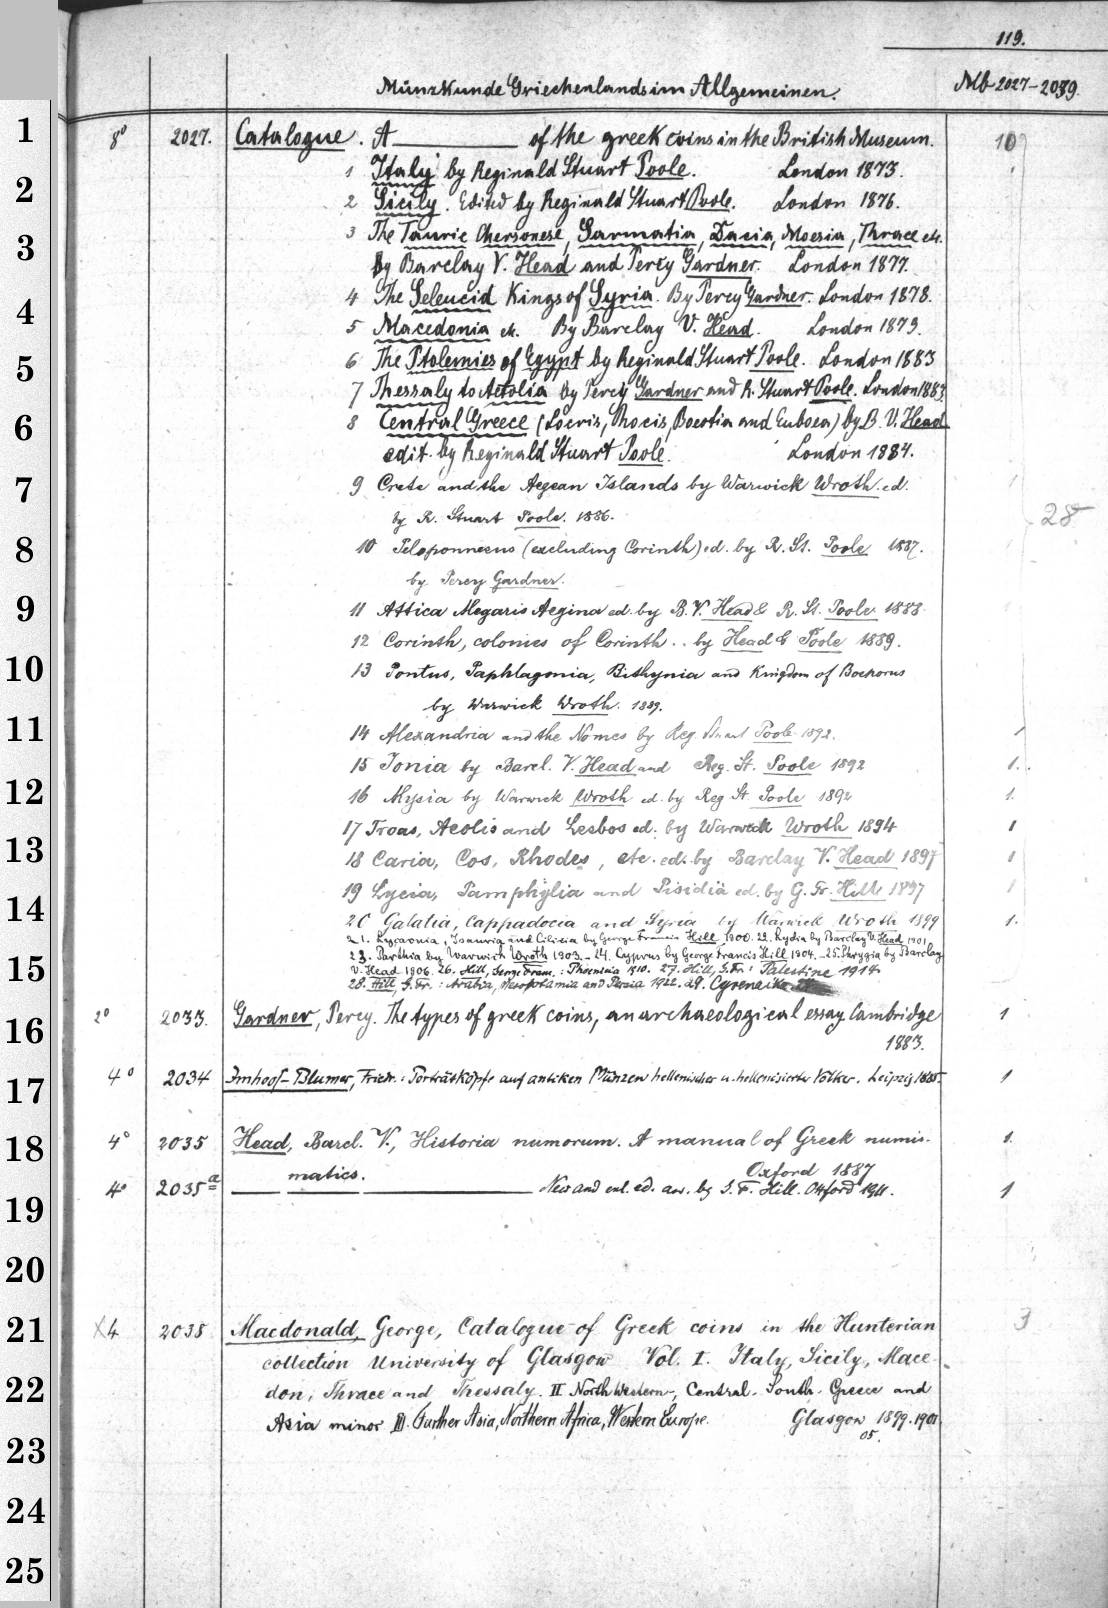 119.
Münzkunde Griechenlands im Allgemeinen. Mb 2027-2039.
8° 2027. Catalogue. A ______ of the greek coins in the British Museum. 10
1 Italy by Reginald Stuart Poole. London 1873.
2 Sicily. Edited by Reginald Stuart Poole. London 1876.
3 The Tauric Chersonese, Sarmatia, Dacia, Moesia, Thrace etc.
by Barclay V. Head and Percy Gardner. London 1877.
4 The Seleucid Kings of Syria. By Percy Gardner. London 1878.
5 Macedonia etc. By Barclay V. Head. London 1879.
6 The Ptolemies of Egypt by Reginald Stuart Poole. London 1883
7 Thessaly to Aetolia by Percy Gardner and R. Stuart Poole. London 1883.
8 Central Greece (Locris, Phocis, Boeotia and Euboea) by B. V. Head
edit. by Reginald Stuart Poole. London 1884.
9 Crete and the Aegean Islands by Warwick Wroth. ed. 1
by R. Stuart Poole. 1886. 28
10 Peloponnesus (excluding Corinth) ed. by R. St. Poole 1887.
by Percy Gardner.
11 Attica Megaris Aegina ed. by B. V. Head & R. St. Poole 1888
12 Corinth, colonies of Corinth.. by Head & Poole 1889.
13 Pontus, Paphlagonia, Bithynia and Kingdom of Bosporus
by Warwick Wroth. 1889.
14 Alexandria and the Nomes by Reg. Stuart Poole 1892. 1
15 Ionia by Barcl. V. Head and Reg. St. Poole 1892 1.
16 Mysia by Warwick Wroth ed. by Reg St. Poole 1892 1.
17 Troas, Aeolis and Lesbos ed. by Warwick Wroth 1894 1
18 Caria, Cos, Rhodes, etc. ed. by Barclay V. Head 1897 1
19 Lycia, Pamphylia and Pisidia ed. by G. Fr. Hill 1897 1
20 Galatia, Cappadocia and Syria by Warwick Wroth 1899 1.
21. Lycaonia, Isauria and Cilicia by George Francis Hill 1900. 22. Lydia by Barclay V. Head 1901
23. Parthia by Warwick Wroth 1903. - 24. Cyprus by George Francis Hill 1904. - 25. Phrygia by Barclay
V. Head 1906. 26. Hill, George Franc. : Phoenicia 1910. 27. Hill, G. Fr. : Palestine 1914.
28. Hill, G. Fr. : Arabia, Mesopotamia and Persia 1922. 29. Cyrenaika
2° 2033. Gardner, Percy. The types of greek coins, an archaeological essay. Cambridge 1
1883.
4° 2034 Imhoof-Blumer, Friedr. : Porträtköpfe auf antiken Münzen hellenischer u. hellenisierter Völker. Leipzig 1885. 1
4° 2035 Head, Barcl. V., Historia numorum. A manual of Greek numis- 1.
matics. Oxford 1887
4° 2035a ______ New and enl. ed. by G. F. Hill. Oxford 1911. 1
X4 2038 Macdonald, George, Catalogue of Greek coins in the Hunterian 3
collection University of Glasgow Vol. I. Italy, Sicily, Mace-
don, Thrace and Thessaly. II North Western-, Central- South- Greece and
Asia minor III. Further Asia, Northern Africa, Western Europe. Glasgow 1899. 1901
05.
1
2
3
4
5
6
7
8
9
10
11
12
13
14
15
16
17
18
19
20
21
22
23
24
25